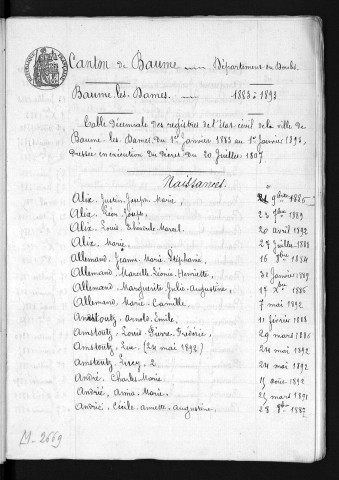 Canton de Baume — Département du Doubs
Baume-les-Dames. — 1883 à 1893
Table décennale des registres de l'état civil de la ville de
Baume-les-Dames du 1er janvier 1883 au 1er janvier 1893,
dressée en exécution du décret du 20 Juillet 1807
Naissances.
Alix Justin Joseph Marie 21 9bre 1886
Alix Léon Joseph 1889
Alix Louis Marcel 20 avril 1892
Alix Marie 27 Juillet 1888
Allemand Jeanne Marie Stéphanie 16 1884
Allemand Marcelle Léonie Henriette 31 Janvier 1889
Allemand Marguerite Julie Augustine 17 Xbre 1886
Allemand Marie Camille 7 mai 1892
Amstoutz Arnold Clovis 11 février 1888
Amstoutz Louis Pierre Frédéric 29 mars 1886
Amstoutz (24 mai 1892) 24 mai 1892
Amstoutz 2. 24 mai 1892
André Charles Marie 15 août 1892
André, Anna Marie 25 mars 1891
André, Cécile Annette Augustine 28 1887
M-2669